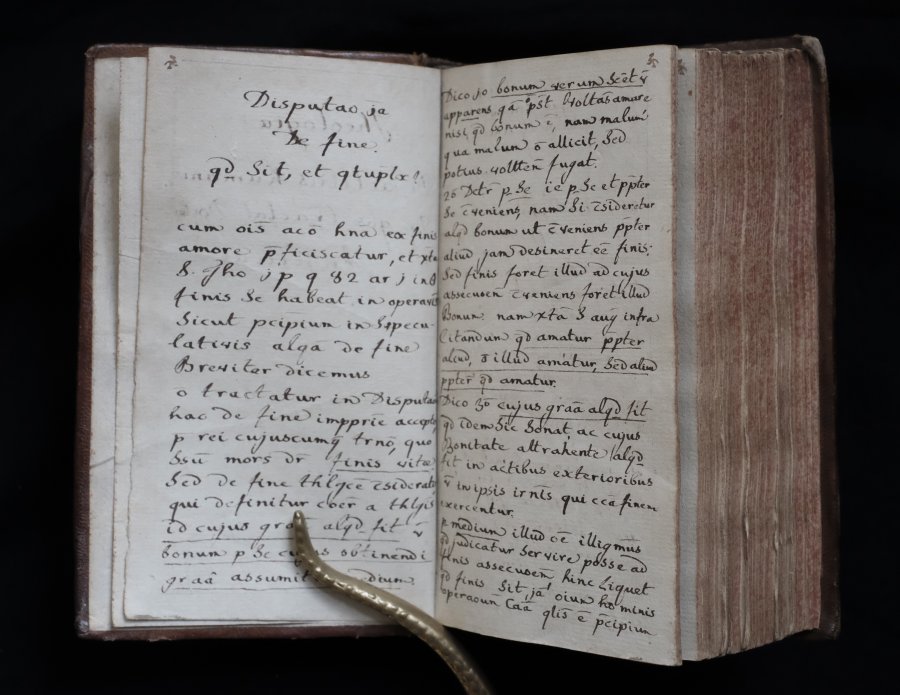 Disputaō ja
De fine.
qđ Sit, et qtuplx?
cum ois̄ acō hna ex finis
amore p̄ficiscatur, et xta
S. Tho j p q 82 ar j in
finis Se habeat in operavis
Sicut pcipium in Specu-
lativis alqa de fine
Breviter dicemus
o tractatur in Disputaō
hac de fine imprīe accepto
p rei cujuscumq trnō, quo
Ssū mors dr finis vitæ
Sed de fine thlgce c̄siderato
qui definitur coēr a thlgis
id cujus graā alqđ fit v̄
bonum p Se cujus obtinendi
graā assumit medium
Dico jo bonum verum Scēt v̄
apparens qā pst voltas amare
nisi qđ bonum ē, nam malum
qua malum ō allicit, Sed
potius vollten̄ fugat.
2o Detr̄ p Se ie p Se et ppter
Se c̄veniens, nam Si c̄sideretur
alqđ bonum ut c̄veniens ppter
aliud, jam desineret eē finis;
Sed finis foret illud ad cujus
assecuoēn c̄veniens foret illud
Bonum nam xtā S aug infra
Citandum qđ amatur ppter
aliud, ō illud amatur, Sed aliud
ppter qđ amatur.
Dico 3o cujus graā alqđ fit
qđ idem hic Sonat, ac cujus
Bonitate attrahente alqđ
fit in actibus exterioribus
v̄ in ipsis irnīs qui cca finem
exercentur.
p medium illud oē illigmus
qđ judicatur Servire posse ad
finis assecuoēn hinc Liquet
qđ finis Sit ja oium hominis
operaoun Caā qlis ē pcipium